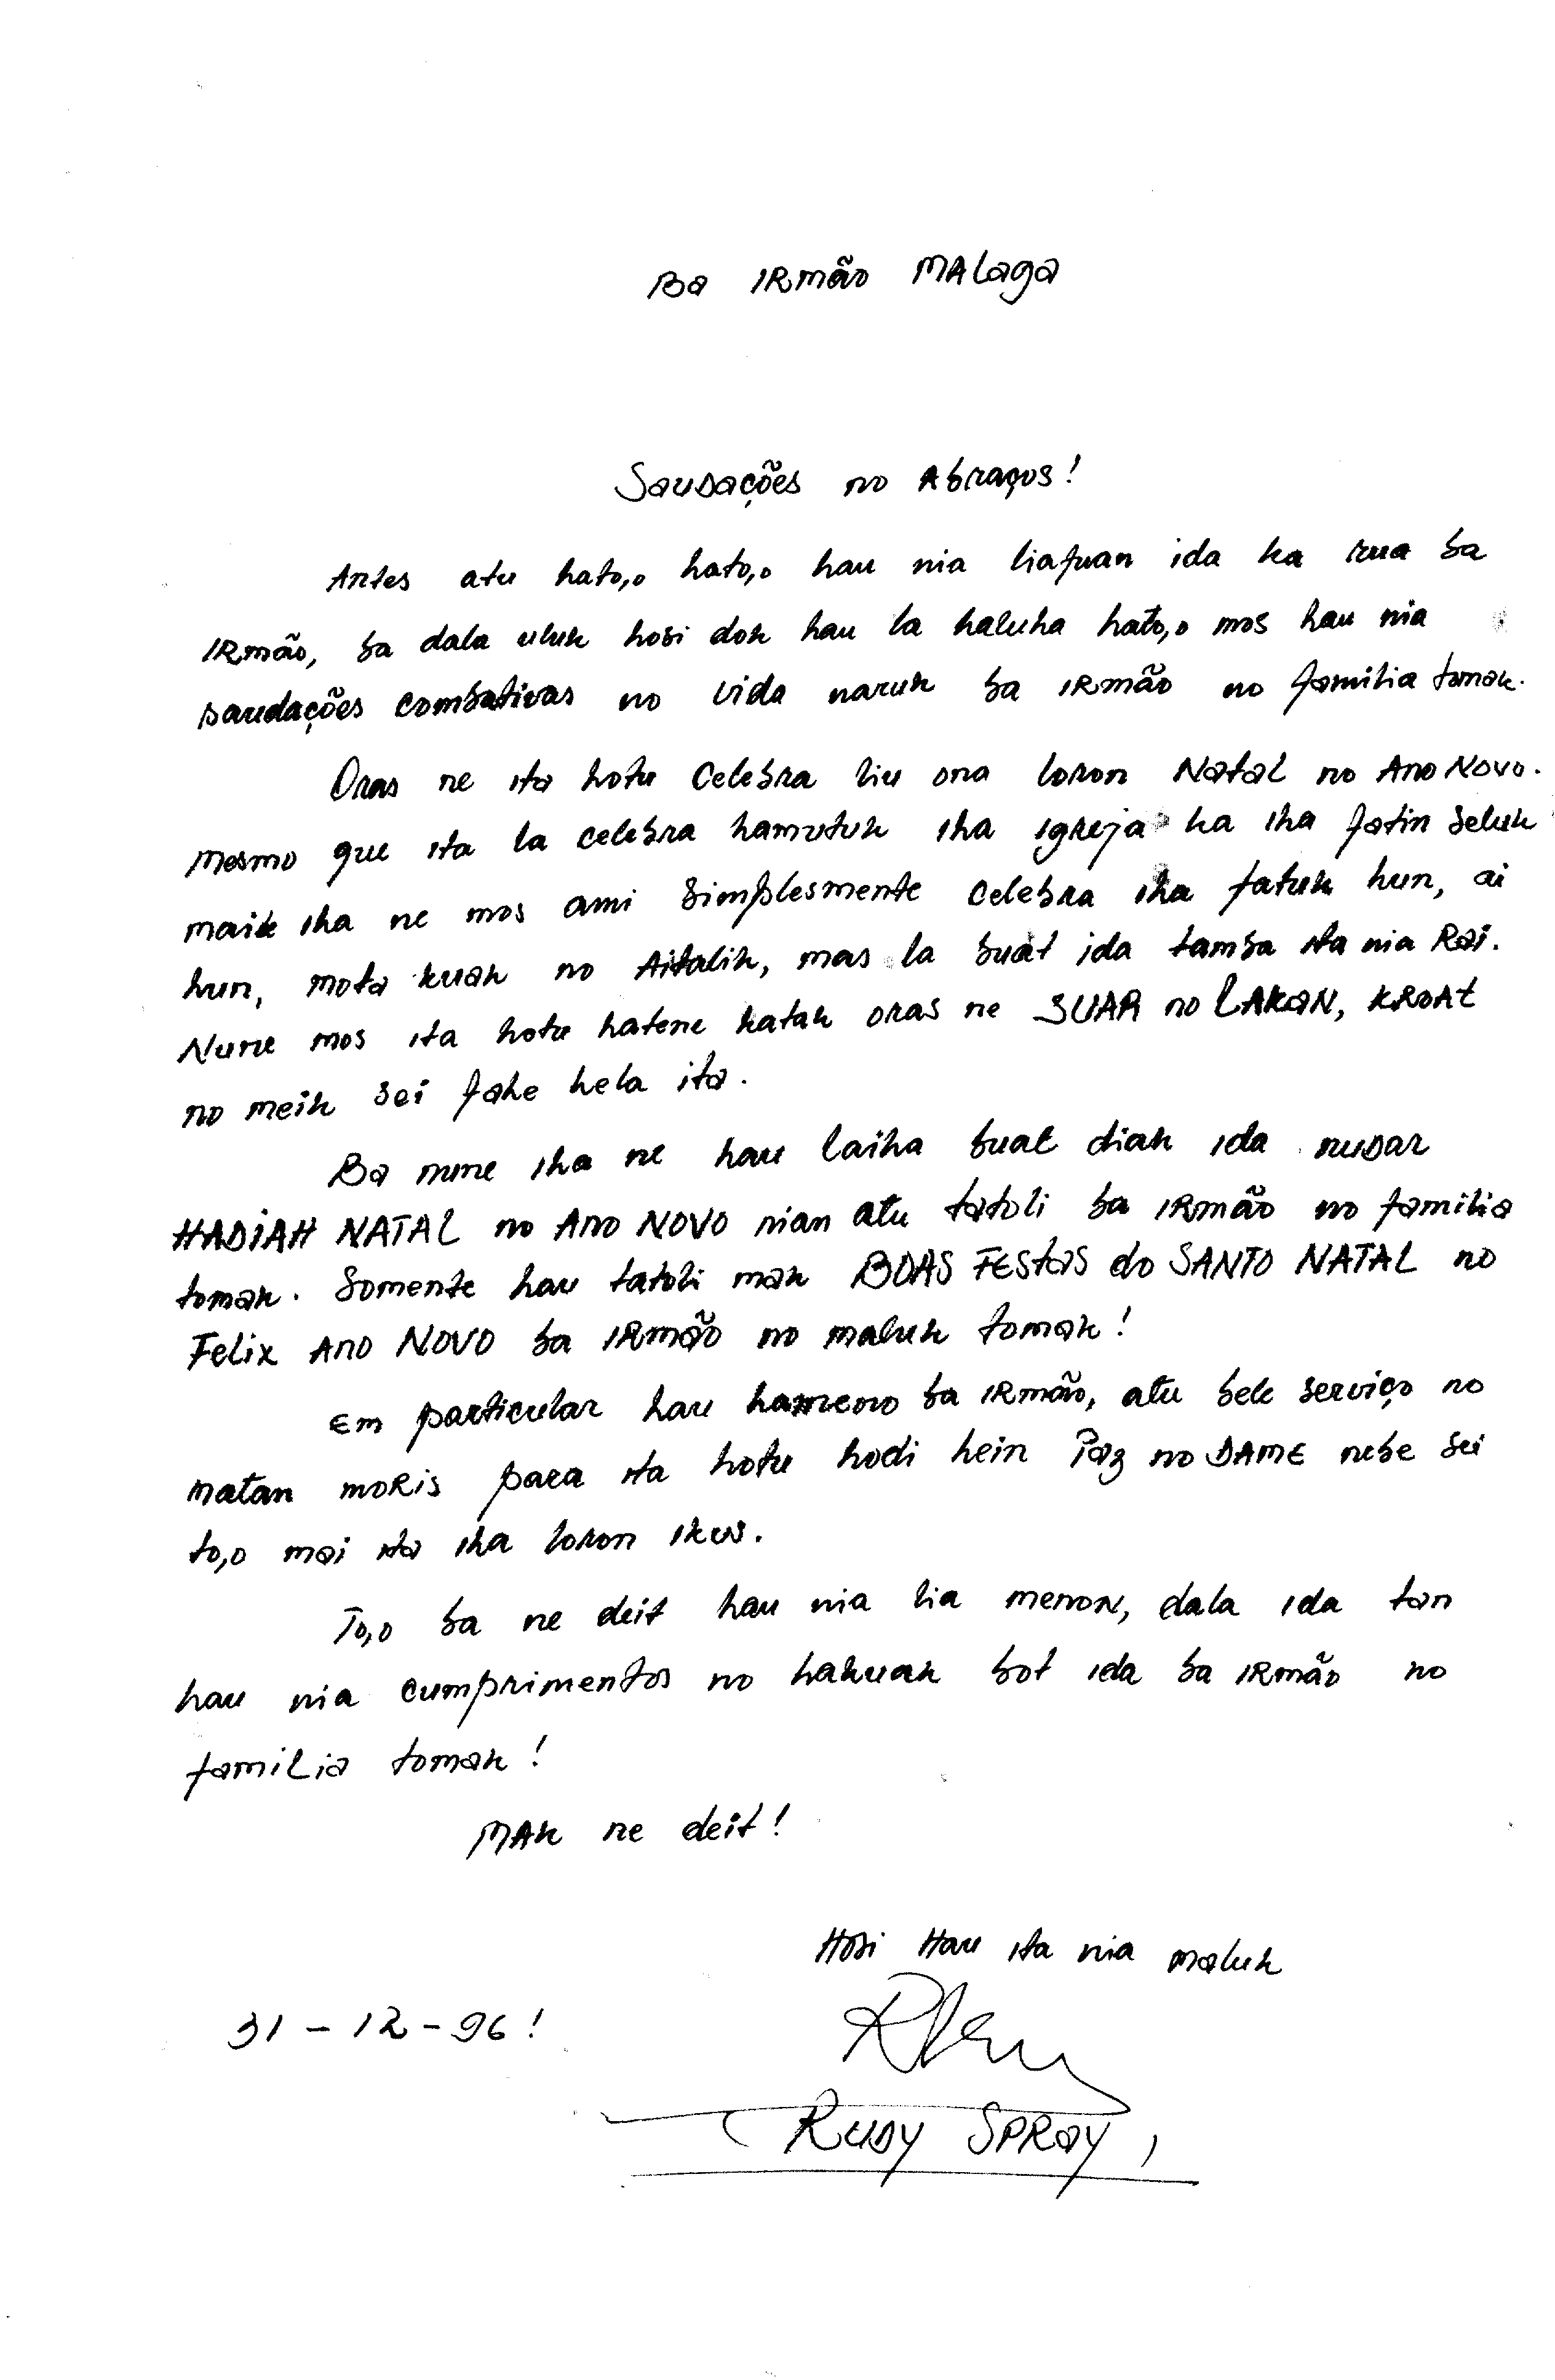 Ba IRmão MALaga
Saudações no Abraços!
Antes atu hato,o hato,o hau nia liafuan ida ka rua ba
IRmão, ba dala uluk hosi dok hau la haluha hato,o mos hau nia
saudações combativas no vida naruk ba IRmão no familia tomak.
Oras ne ita hotu celebra liu ona loron Natal no Ano Novo.
mesmo que ita la celebra hamutuk iha igreja ka iha fatin seluk
maik iha ne mos ami simplesmente celebra iha fatuk hun, ai
hun, mota kuak no Aitalik, mas la buat ida tamba ita nia Rai.
Nune mos ita hotu hatene katak oras ne SUAR no LAKAN, KROAt
no meik sei fahe hela ita.
Ba nune iha ne hau laiha buat diak ida nudar
HADIAH NATAL no Ano Novo nian atu tatoli ba IRmão no familia
tomak. Somente hau tatoli mak BOAS FEStas do SANTO NATAL no
Felix Ano Novo ba IRmão no maluk tomak!
Em particular hau hameno ba IRmão, atu bele serviço no
matan moris para ita hotu hodi hein Paz no DAME nebe sei
to,o mai ita iha loron ikus.
To,o ba ne deit hau nia lia menon, dala ida tan
hau nia cumprimentos no hakuak bot ida ba IRmão no
familia tomak!
MAK ne deit!
Hosi Hau ita nia maluk
31-12-96!
( RUDY SPRAY )